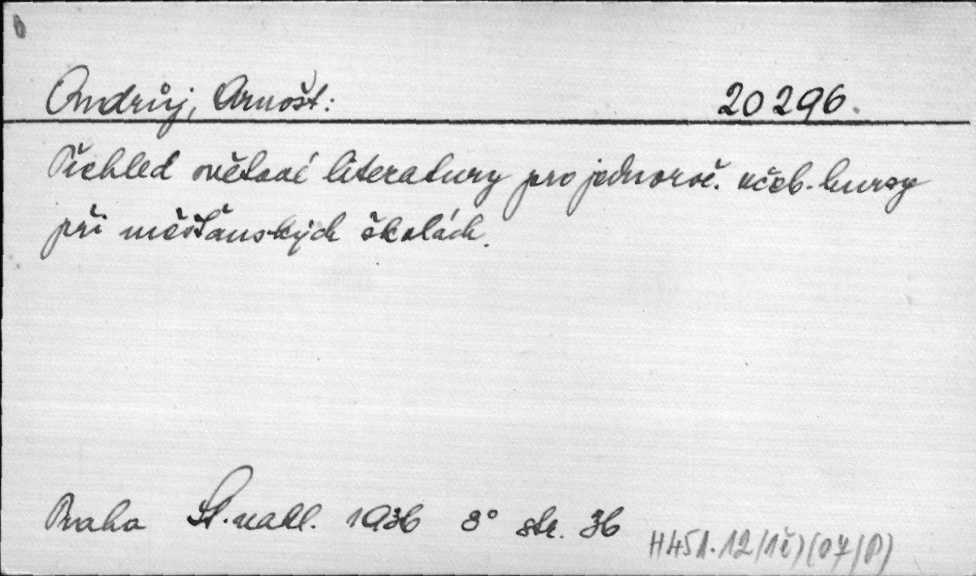 Ondrůj, Arnošt: 20296.
Přehled světové literatury pro jednoroč. učeb. kursy
při měšťanských školách.
Praha St. nakl. 1936 8° str. 36